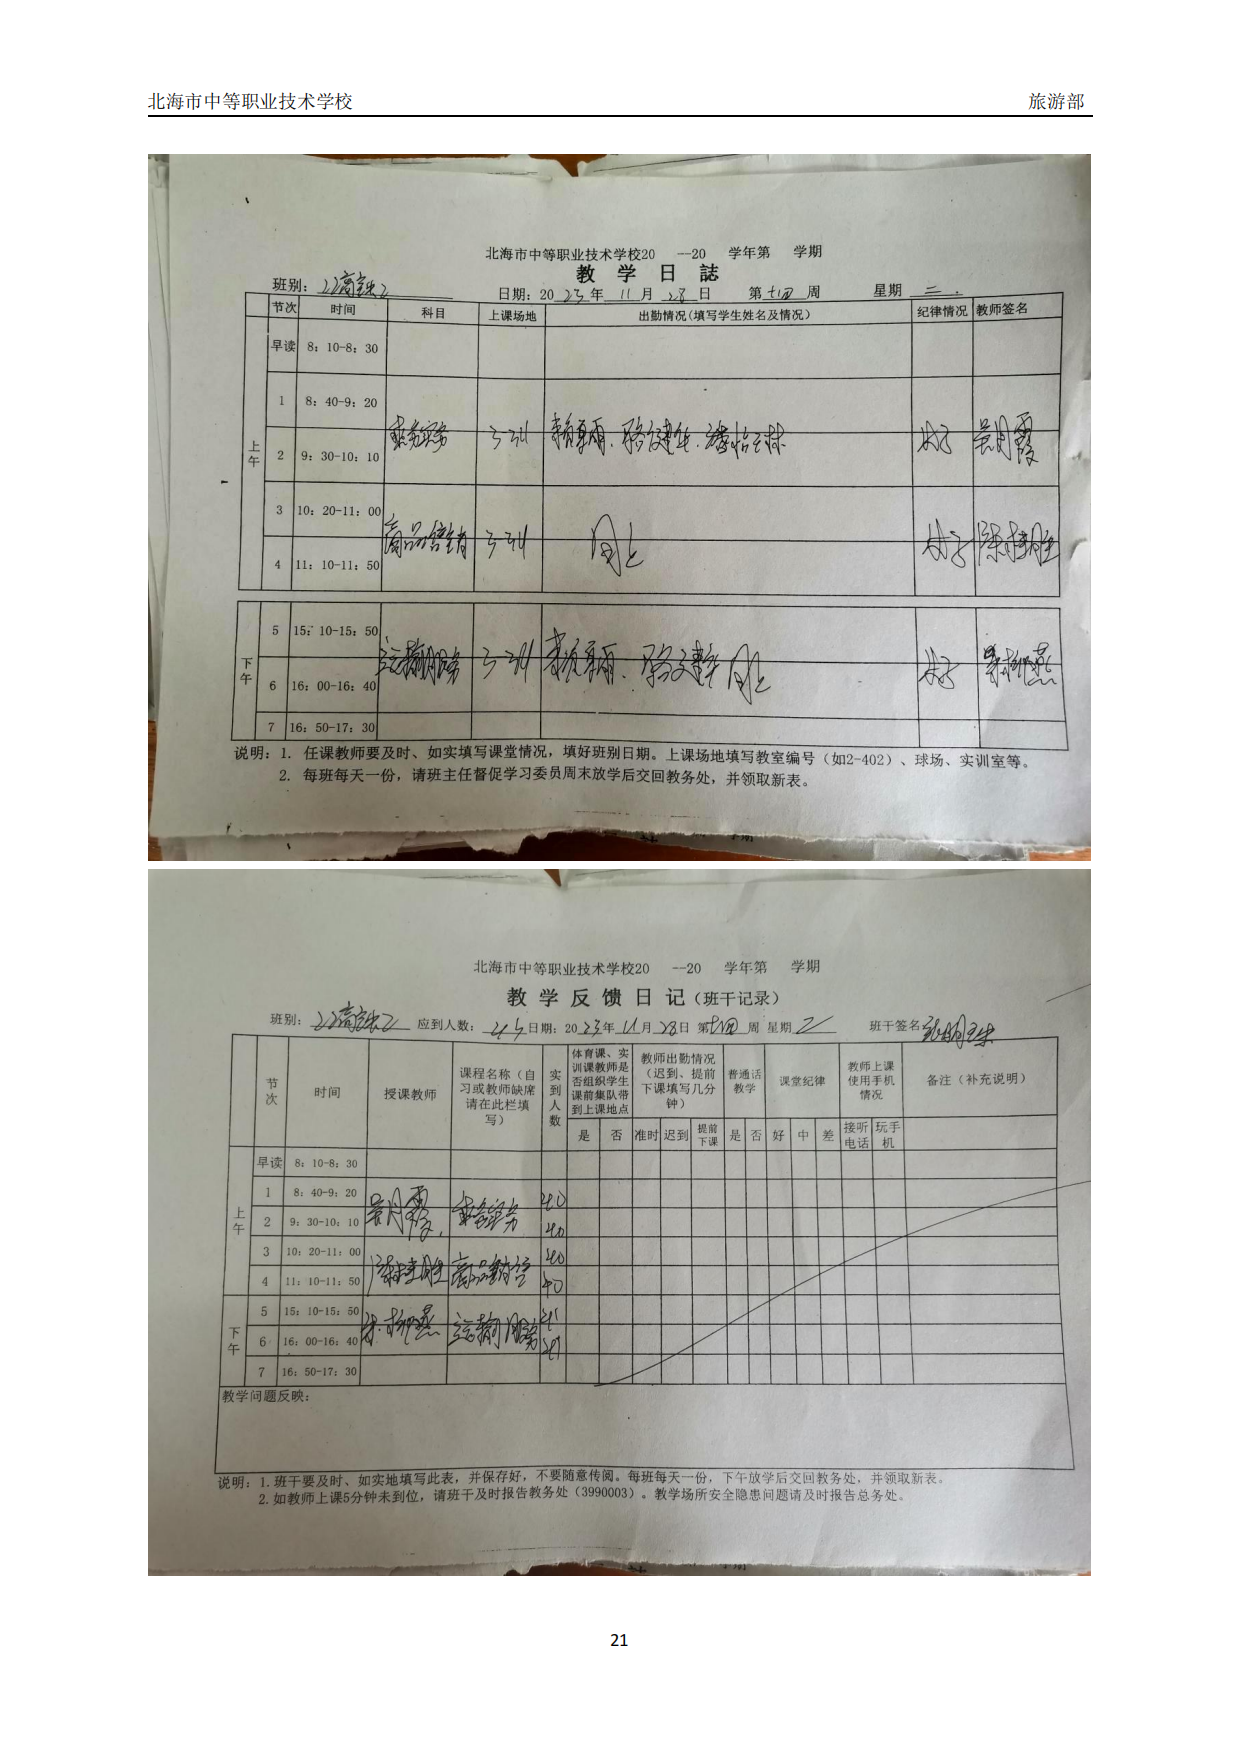 北海市中等职业技术学校 旅游部
北海市中等职业技术学校20 --20 学年第 学期
教 学 日 誌
班别：22高铁2 日期：2023年11月28日 第十四周 星期二
节次 时间 科目 上课场地 出勤情况(填写学生姓名及情况) 纪律情况 教师签名
早读 8：10-8：30
上午
1 8：40-9：20
2 9：30-10：10 吴月霞
3 10：20-11：00 同上
4 11：10-11：50
下午
5 15：10-15：50
6 16：00-16：40 同上
7 16：50-17：30
说明：1. 任课教师要及时、如实填写课堂情况，填好班别日期。上课场地填写教室编号（如2-402）、球场、实训室等。
2. 每班每天一份，请班主任督促学习委员周末放学后交回教务处，并领取新表。
北海市中等职业技术学校20 --20 学年第 学期
教 学 反 馈 日 记（班干记录）
班别：22高铁2 应到人数： 日期：2023年11月28日 第十四周 星期二 班干签名
节次 时间 授课教师 课程名称（自习或教师缺席请在此栏填写） 实到人数 体育课、实训课教师是否组织学生课前集队带到上课地点 教师出勤情况（迟到、提前下课填写几分钟） 普通话教学 课堂纪律 教师上课使用手机情况 备注（补充说明）
是 否 准时 迟到 提前下课 是 否 好 中 差 接听电话 玩手机
早读 8：10-8：30
上午
1 8：40-9：20 吴月霞 40
2 9：30-10：10 40
3 10：20-11：00 40
4 11：10-11：50 40
下午
5 15：10-15：50
6 16：00-16：40
7 16：50-17：30
教学问题反映：
说明：1.班干要及时、如实地填写此表，并保存好，不要随意传阅。每班每天一份，下午放学后交回教务处，并领取新表。
2.如教师上课5分钟未到位，请班干及时报告教务处（3990003）。教学场所安全隐患问题请及时报告总务处。
21